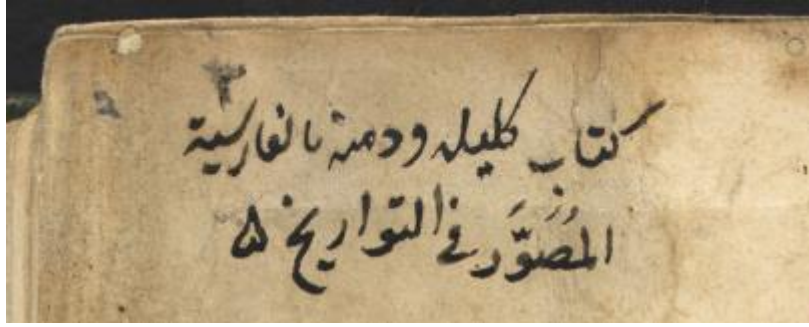 كتاب كليله ودمنه بالفارسية
المُصَوَّر في التواريخ ۵